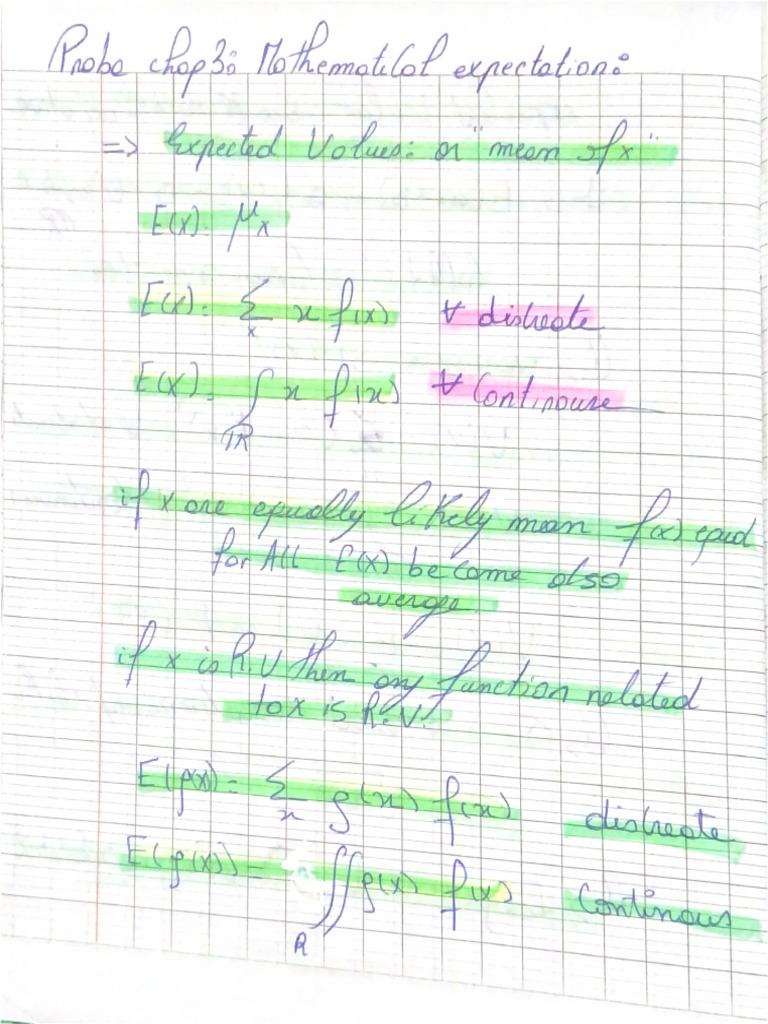 Proba chap3: Mathematical expectation:
=> Expected Values: or "mean of x"
E(X) = μx
E(X) = Σx x f(x) ∀ discreate
E(X) = ∫ℝ x f(x) ∀ Continouse
if x are equally likely mean f(x) equal
for All E(X) become also
average
if x is R.V then any function related
to x is R.V.
E(g(x)) = Σx g(x) f(x) discreate
E(g(x)) = ∬R g(x) f(x) Continous